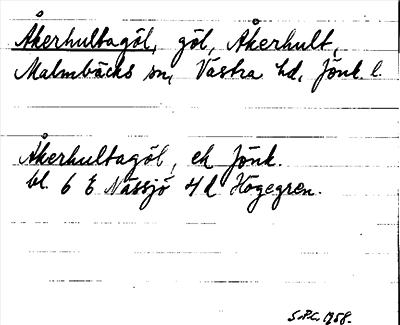 Åkerhultagöl, göl, Åkerhult,
Malmbäcks sn, Västra hd, Jönk. l.
Åkerhultagöl, ek Jönk.
bl. 6 E Nässjö 4d Högegren.
S.P.C. 1958.